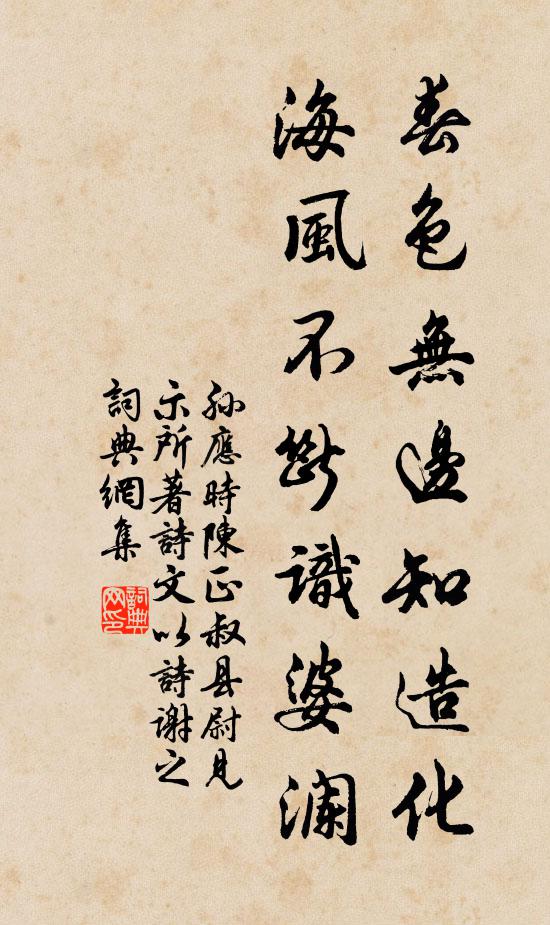 春色無邊知造化
海風不斷識婆瀾
孙應時陳正叔县尉見
示所著詩文以詩謝之
詞典網集
詞典网印